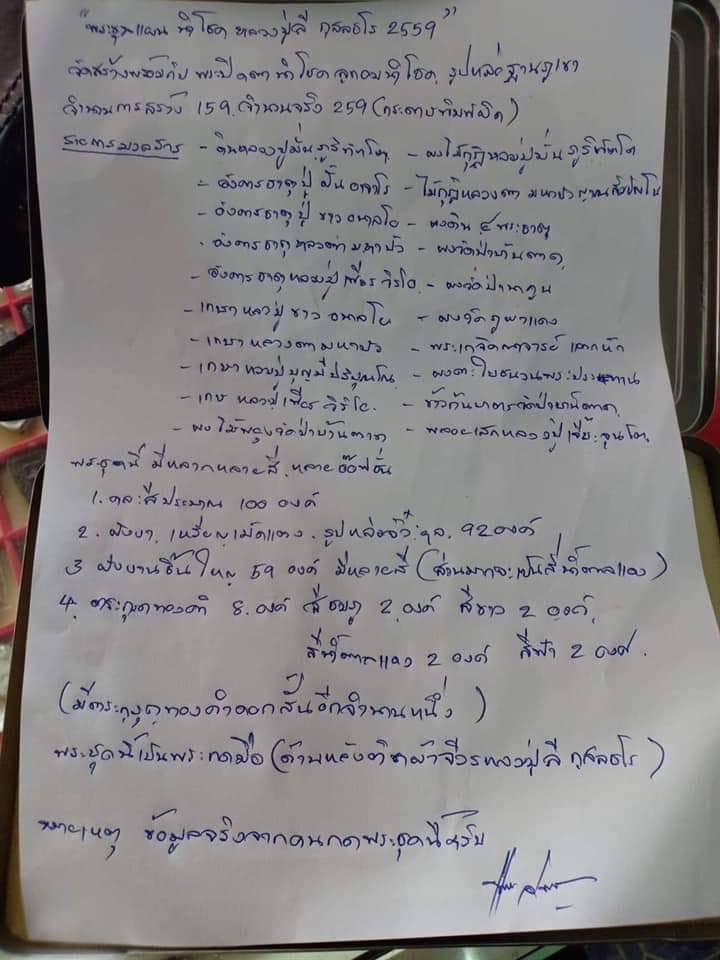 "พระขุนแผน นำโชค หลวงปู่ลี กุสลธโร 2559"
จัดสร้างพร้อมกับ พระปิดตานำโชค ลูกอมนำโชค, รูปหล่อฐานภูเขา
จำนวนการสร้าง 159, จำนวนจริง 259 (กระดาษพิมพ์ผิด)
รายการมวลสาร - ดินหลวงปู่มั่น ภูริทัตโต - ผงไม้กุฏิหลวงปู่มั่น ภูริทัตโต
- อังคารธาตุปู่ ฝั้น อาจาโร - ไม้กุฏิหลวงตา มหาบัว ญาณสัมปันโน
- อังคารธาตุปู่ ขาว อนาลโย - ผงดิน ๔ พระธาตุ
- อังคารธาตุหลวงตามหาบัว - ผงวัดป่าบ้านตาด
- อังคารธาตุหลวงปู่เพียร วิริโย - ผงวัดป่านาคูณ
- เกษาหลวงปู่ ขาว อนาลโย - ผงวัดภูผาแดง
- เกษาหลวงตามหาบัว - พระเกจิคณาจารย์
- เกษาหลวงปู่บุญมี ปริปุณโณ - ผงตะไบชนวนพระประทาน
- เกษาหลวงปู่เพียร วิริโย - ข้าวก้นบาตรวัดป่าบ้านตาด
- ผงไม้พะยูงวัดป่าบ้านตาด - พลอยเสกหลวงปู่เจี๊ยะ จุนโท
พระชุดนี้ มีหลากหลายสี, หลายอ๊อฟชั่น
1. คละสีประมาณ 100 องค์
2. ฝังยา, เหรียญเม็ดแตง, รูปหล่อจิ๋ว, ฯล, 92 องค์
3 ฝังจานชิ้นใหญ่ 59 องค์ มีหลายสี (ส่วนมากจะเป็นสีน้ำตาลแดง)
4. ตระกุดทองคำ 8 องค์ สีชมภู 2 องค์ สีขาว 2 องค์,
สีน้ำตาลแดง 2 องค์ สีฟ้า 2 องค์.
(มีตระกุดทองคำดอกสั้นอีกจำนวนหนึ่ง)
พระชุดนี้เป็นพระกดมือ (ด้านหลังติดผ้าจีวรหลวงปู่ลี กุสลธโร)
หมายเหตุ ข้อมูลจริงจากคนกดพระชุดนี้ครับ